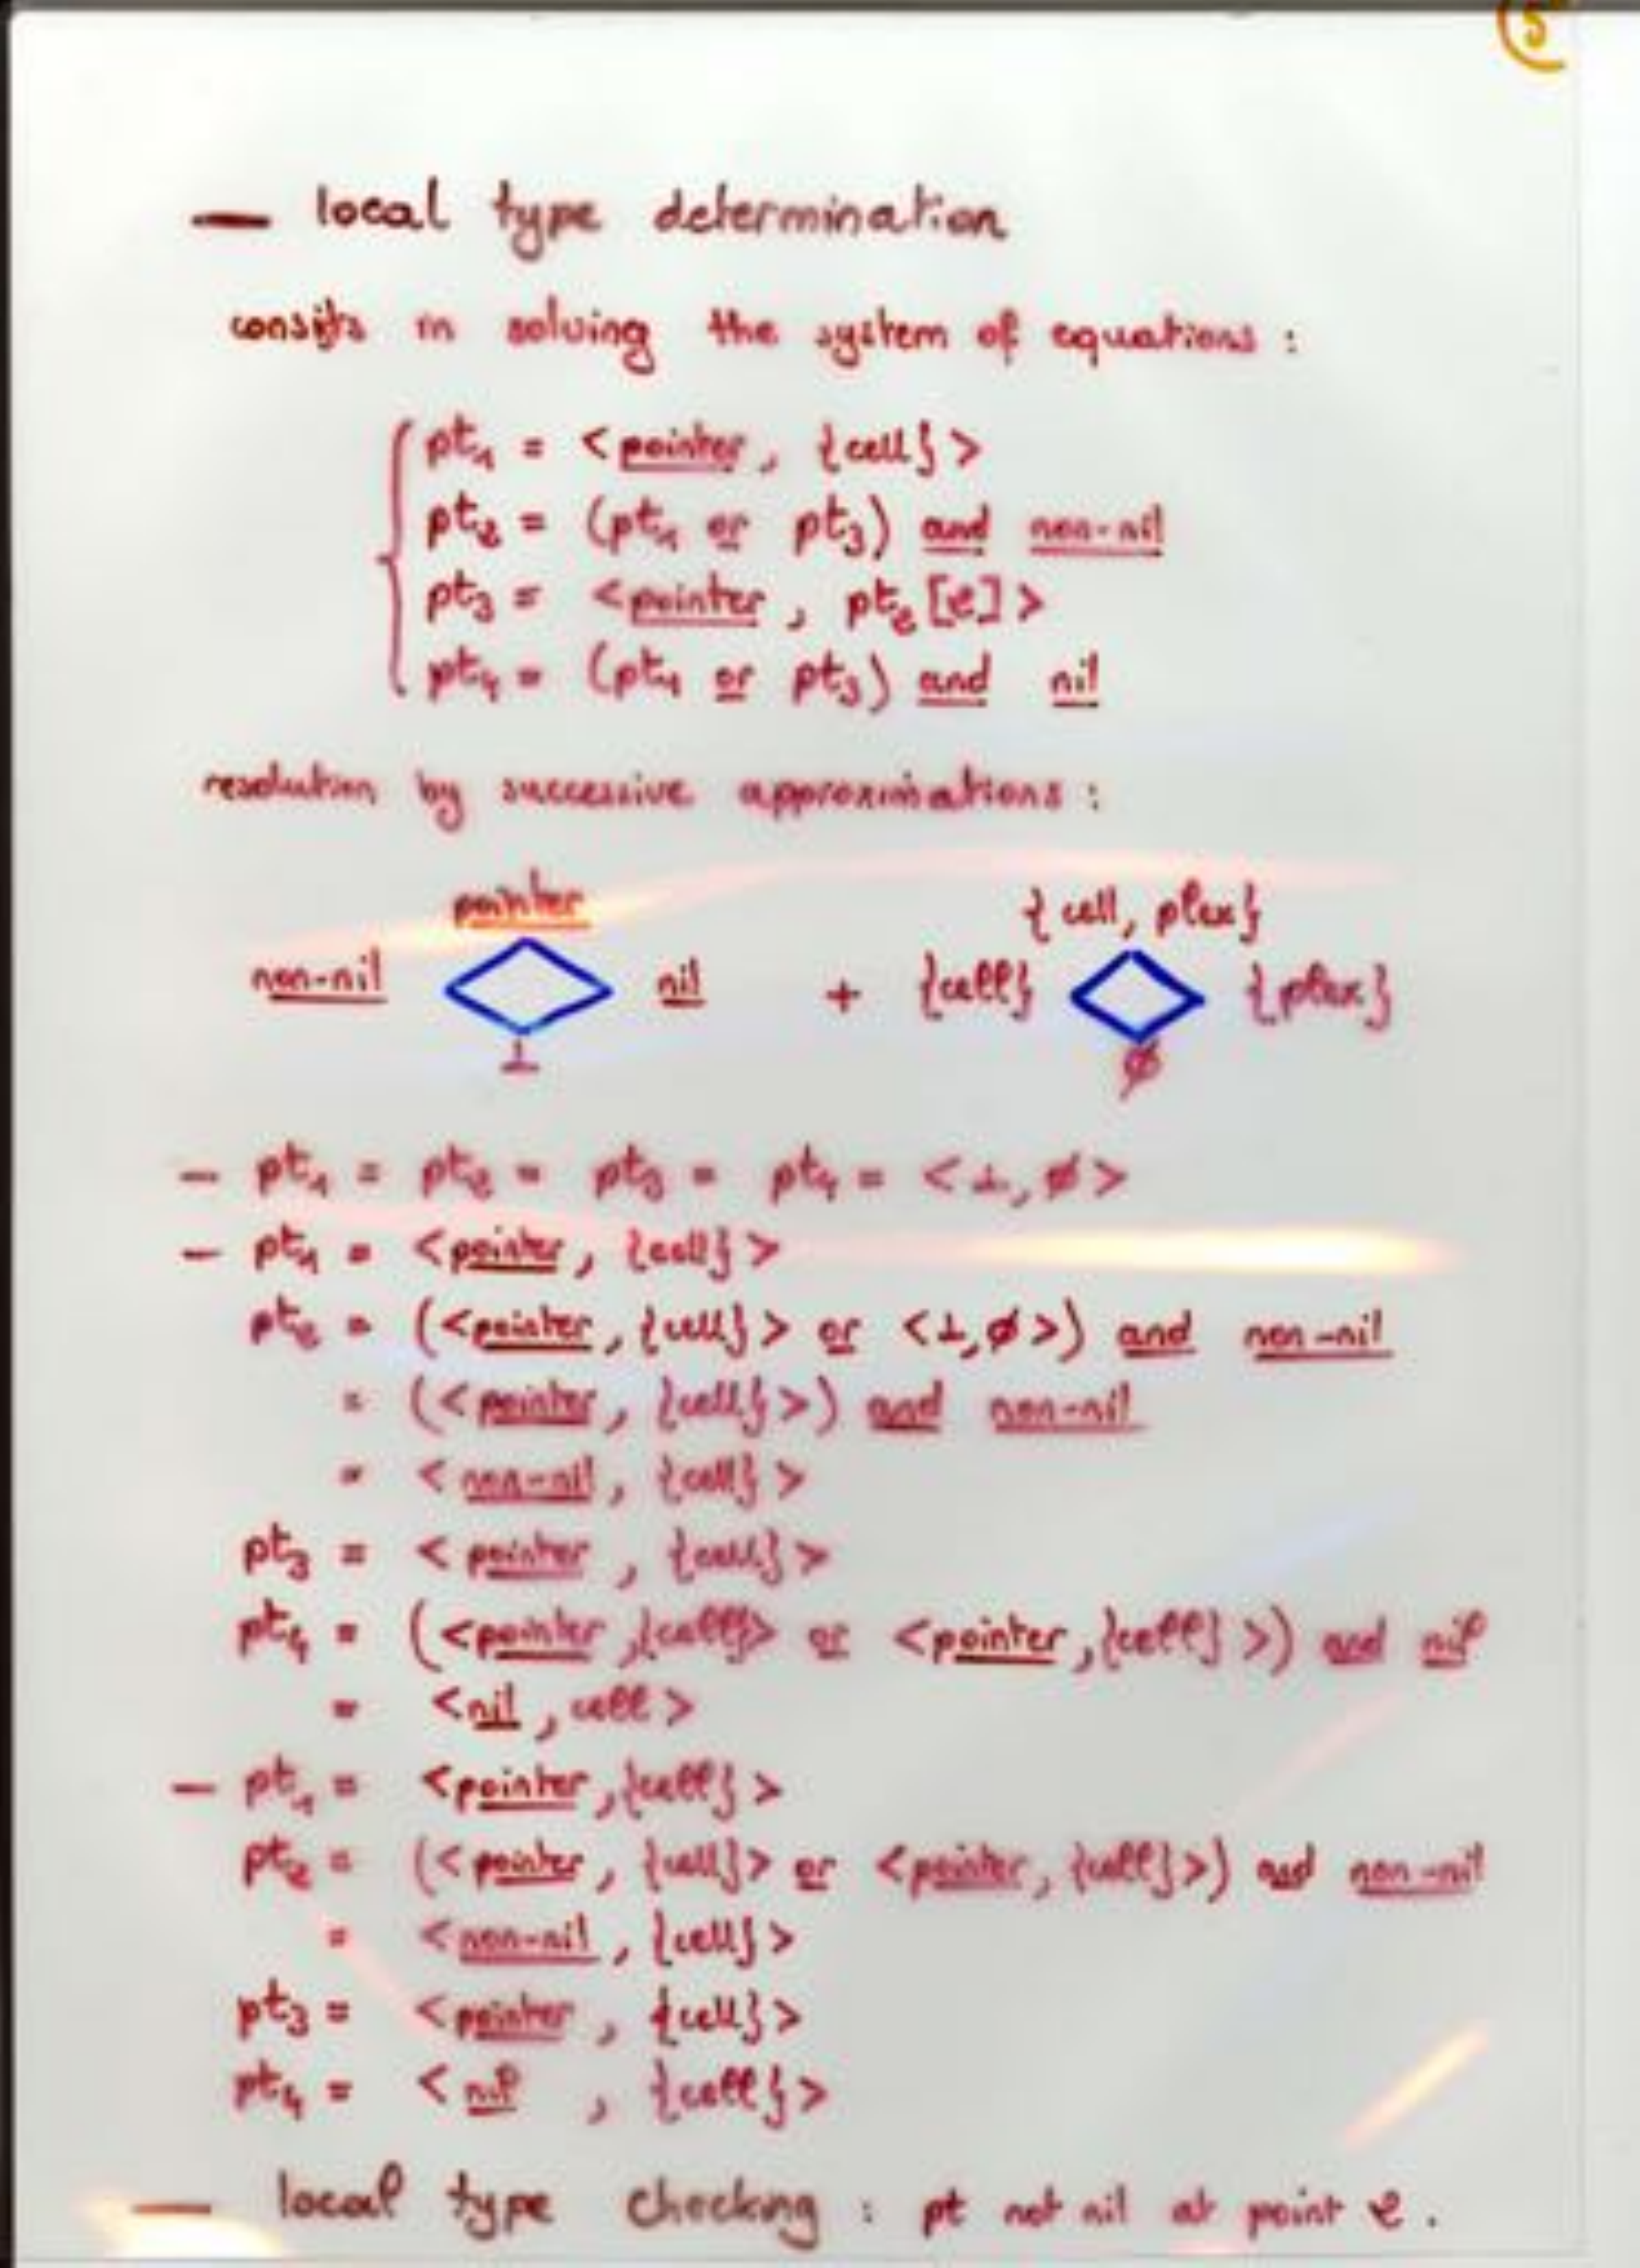 5
— local type determination
consists in solving the system of equations :
pt₁ = <pointer, {cell}>
pt₂ = (pt₁ or pt₃) and non-nil
pt₃ = <pointer, pt₂[2]>
pt₄ = (pt₁ or pt₃) and nil
resolution by successive approximations :
pointer
{cell, plex}
non-nil nil + {cell} {plex}
⊥ ø
— pt₁ = pt₂ = pt₃ = pt₄ = <⊥, ø>
— pt₁ = <pointer, {cell}>
pt₂ = (<pointer, {cell}> or <⊥, ø>) and non-nil
= (<pointer, {cell}>) and non-nil
= <non-nil, {cell}>
pt₃ = <pointer, {cell}>
pt₄ = (<pointer, {cell}> or <pointer, {cell}>) and nil
= <nil, cell>
— pt₁ = <pointer, {cell}>
pt₂ = (<pointer, {cell}> or <pointer, {cell}>) and non-nil
= <non-nil, {cell}>
pt₃ = <pointer, {cell}>
pt₄ = <nil, {cell}>
— local type checking : pt not nil at point 2.